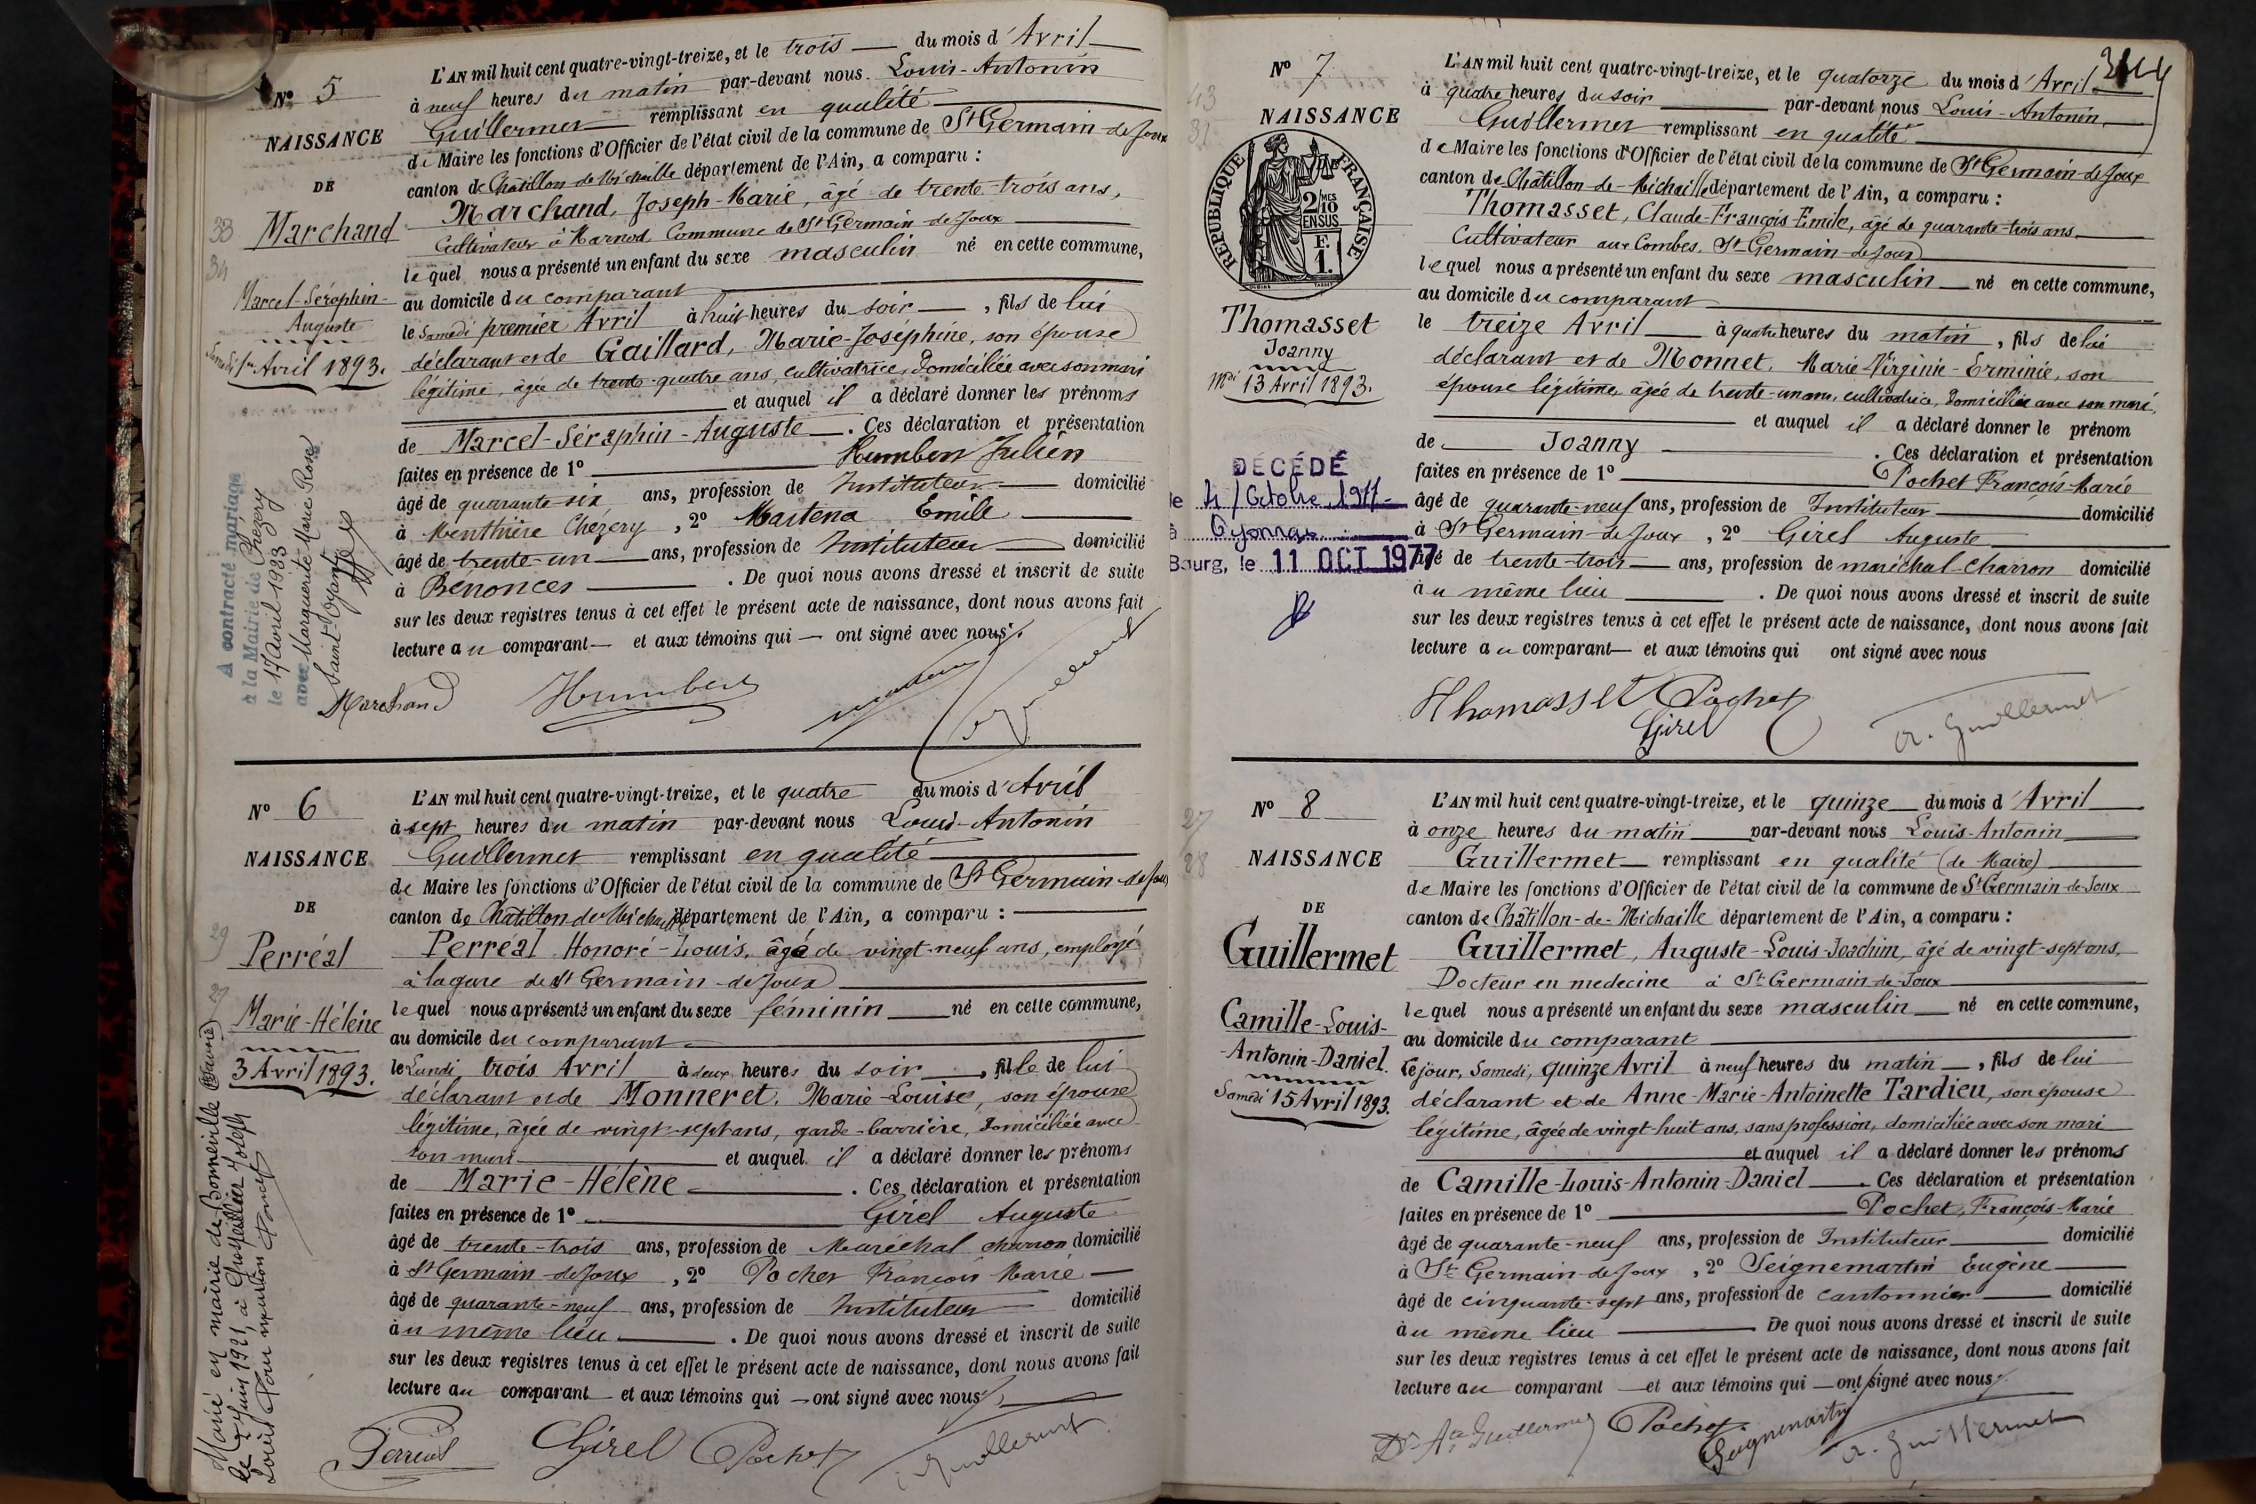 Nº 5
NAISSANCE
DE
Marchand
33
34
Marcel-Séraphin-
Auguste
Samedi 1er Avril 1893.
A contracté mariage
à la Mairie de Chézery
le 17 Avril 1933
avec Marguerite Marie Rose
L'AN mil huit cent quatre-vingt-treize, et le trois du mois d'Avril
à neuf heures du matin par-devant nous Louis-Antonin
Guillermet remplissant en qualité
de Maire les fonctions d'Officier de l'état civil de la commune de St Germain-de-Joux
canton de Châtillon-de-Michaille département de l'Ain, a comparu :
Marchand, Joseph-Marie, âgé de trente-trois ans,
Cultivateur à Marnod, Commune de St Germain-de-Joux
lequel nous a présenté un enfant du sexe masculin né en cette commune,
au domicile du comparant
le Samedi premier Avril à huit heures du soir, fils de lui
déclarant et de Gaillard, Marie-Joséphine, son épouse
légitime, âgée de trente-quatre ans, cultivatrice, domiciliée avec son mari
et auquel il a déclaré donner les prénoms
de Marcel-Séraphin-Auguste. Ces déclaration et présentation
faites en présence de 1º Humbert Julien
âgé de quarante-six ans, profession de Instituteur domicilié
à Menthière Chézery, 2º Emile
âgé de trente-un ans, profession de Instituteur domicilié
à Bénonces. De quoi nous avons dressé et inscrit de suite
sur les deux registres tenus à cet effet le présent acte de naissance, dont nous avons fait
lecture au comparant et aux témoins qui ont signé avec nous.
Marchand Humbert
Nº 6
NAISSANCE
DE
29
Perréal
29
Marie-Hélène
3 Avril 1893.
Marié en mairie de Bonneville (Savoie)
le 7 Juin 1921, à Joseph
Louis
L'AN mil huit cent quatre-vingt-treize, et le quatre du mois d'Avril
à sept heures du matin par-devant nous Louis-Antonin
Guillermet remplissant en qualité
de Maire les fonctions d'Officier de l'état civil de la commune de St Germain-de-Joux
canton de Châtillon-de-Michaille département de l'Ain, a comparu :
Perréal Honoré-Louis, âgé de vingt-neuf ans, employé
à la gare de St Germain-de-Joux
lequel nous a présenté un enfant du sexe féminin né en cette commune,
au domicile du comparant
le Lundi trois Avril à deux heures du soir, fille de lui
déclarant et de Monneret, Marie-Louise, son épouse
légitime, âgée de vingt-sept ans, garde-barrière, domiciliée avec
son mari et auquel il a déclaré donner les prénoms
de Marie-Hélène. Ces déclaration et présentation
faites en présence de 1º Girel Auguste
âgé de trente-trois ans, profession de Maréchal charron domicilié
à St Germain-de-Joux, 2º Pochet François Marie
âgé de quarante-neuf ans, profession de Instituteur domicilié
au même lieu. De quoi nous avons dressé et inscrit de suite
sur les deux registres tenus à cet effet le présent acte de naissance, dont nous avons fait
lecture au comparant et aux témoins qui ont signé avec nous.
Perréal Girel Pochet Guillermet
Nº 7
43
31
NAISSANCE
RÉPUBLIQUE FRANÇAISE
2/10
EN SUS
F.
1.
Thomasset
Joanny
13 Avril 1893.
DÉCÉDÉ
le 4 Octobre 1977
à Oyonnax
Bourg, le 11 OCT 1977
L'AN mil huit cent quatre-vingt-treize, et le quatorze du mois d'Avril
à quatre heures du soir par-devant nous Louis-Antonin
Guillermet remplissant en qualité
de Maire les fonctions d'Officier de l'état civil de la commune de St Germain-de-Joux
canton de Châtillon-de-Michaille département de l'Ain, a comparu :
Thomasset, Claude-François-Emile, âgé de quarante-trois ans
Cultivateur aux Combes, St Germain-de-Joux
lequel nous a présenté un enfant du sexe masculin né en cette commune,
au domicile du comparant
le treize Avril à quatre heures du matin, fils de lui
déclarant et de Monnet, Marie-Virginie-Erminie, son
épouse légitime, âgée de trente-un ans, cultivatrice, domiciliée avec son mari,
et auquel il a déclaré donner le prénom
de Joanny. Ces déclaration et présentation
faites en présence de 1º Pochet François-Marie
âgé de quarante-neuf ans, profession de Instituteur domicilié
à St Germain-de-Joux, 2º Girel Auguste
âgé de trente-trois ans, profession de maréchal-charron domicilié
au même lieu. De quoi nous avons dressé et inscrit de suite
sur les deux registres tenus à cet effet le présent acte de naissance, dont nous avons fait
lecture au comparant et aux témoins qui ont signé avec nous
Thomasset Pochet
Girel A. Guillermet
Nº 8
27
28
NAISSANCE
DE
Guillermet
Camille-Louis-
Antonin-Daniel.
Samedi 15 Avril 1893.
L'AN mil huit cent quatre-vingt-treize, et le quinze du mois d'Avril
à onze heures du matin par-devant nous Louis-Antonin
Guillermet remplissant en qualité (de Maire)
de Maire les fonctions d'Officier de l'état civil de la commune de St Germain-de-Joux
canton de Châtillon-de-Michaille département de l'Ain, a comparu :
Guillermet, Auguste-Louis-Joachim, âgé de vingt-sept ans,
Docteur en medecine à St Germain-de-Joux
lequel nous a présenté un enfant du sexe masculin né en cette commune,
au domicile du comparant
ce jour, Samedi, quinze Avril à neuf heures du matin, fils de lui
déclarant et de Anne-Marie-Antoinette Tardieu, son épouse
légitime, âgée de vingt-huit ans, sans profession, domiciliée avec son mari
et auquel il a déclaré donner les prénoms
de Camille-Louis-Antonin-Daniel. Ces déclaration et présentation
faites en présence de 1º Pochet, François-Marie
âgé de quarante-neuf ans, profession de Instituteur domicilié
à St Germain-de-Joux, 2º Seignemartin Eugène
âgé de cinquante-sept ans, profession de cantonnier domicilié
au même lieu De quoi nous avons dressé et inscrit de suite
sur les deux registres tenus à cet effet le présent acte de naissance, dont nous avons fait
lecture au comparant et aux témoins qui ont signé avec nous.
Dr Guillermet Pochet Seignemartin A. Guillermet